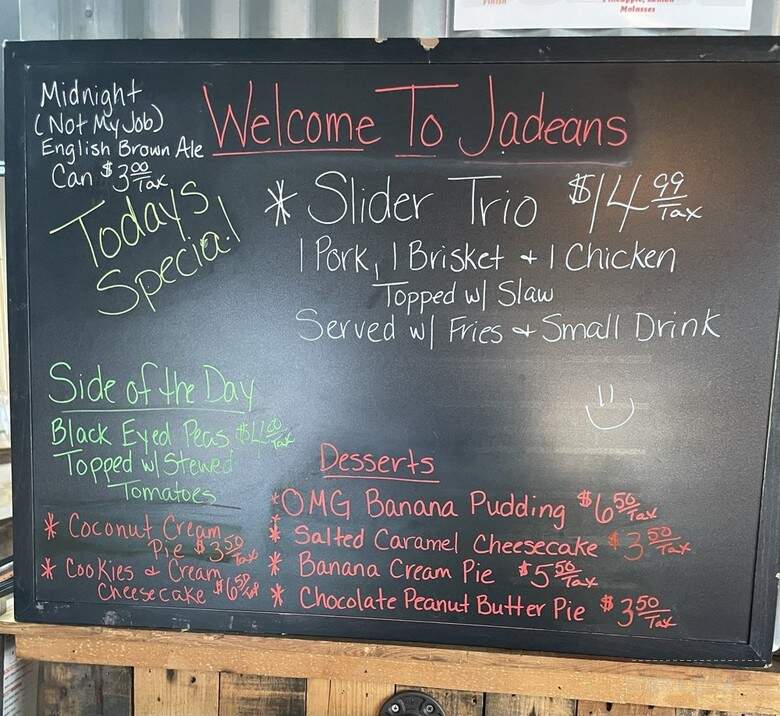 Finish
Pineapple, Cumin
Molasses
Midnight
(Not My Job)
English Brown Ale
Can $3.00/Tax
Welcome To Jadeans
Todays
Special
* Slider Trio $14.99/Tax
1 Pork, 1 Brisket + 1 Chicken
Topped w/ Slaw
Served w/ Fries + Small Drink
Side of the Day
Black Eyed Peas
Topped w/ Stewed
Tomatoes
* Coconut Cream
Pie $3.50/Tax
* Cookies & Cream
Cheesecake $6.50/Tax
Desserts
*OMG Banana Pudding $6.50/Tax
* Salted Caramel Cheesecake $3.50/Tax
* Banana Cream Pie $5.50/Tax
* Chocolate Peanut Butter Pie $3.50/Tax